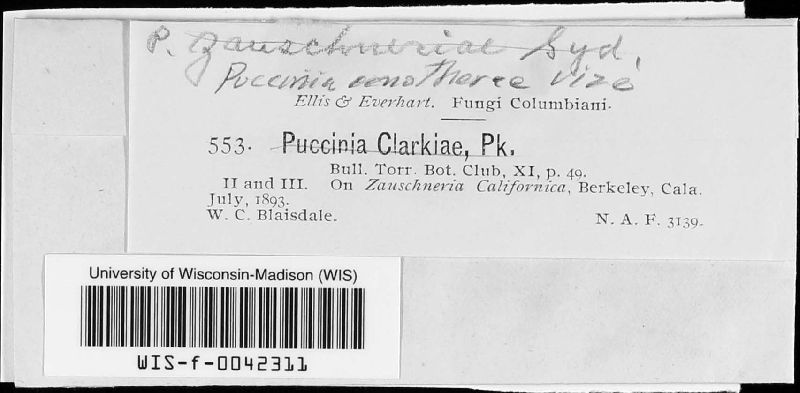 P. Zauschneriae Syd.
Puccinia oenotherae Vize
Ellis & Everhart. Fungi Columbiani.
553. Puccinia Clarkiae, Pk.
Bull. Torr. Bot. Club, XI, p. 49.
II and III. On Zauschneria Californica, Berkeley, Cala.
July, 1893.
W. C. Blaisdale. N. A. F. 3139.
University of Wisconsin-Madison (WIS)
WIS-f-0042311